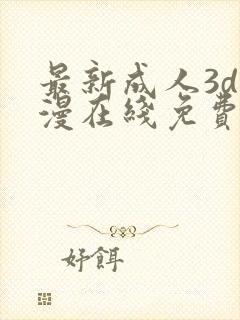 最新成人3d
漫在綫免費
好餌